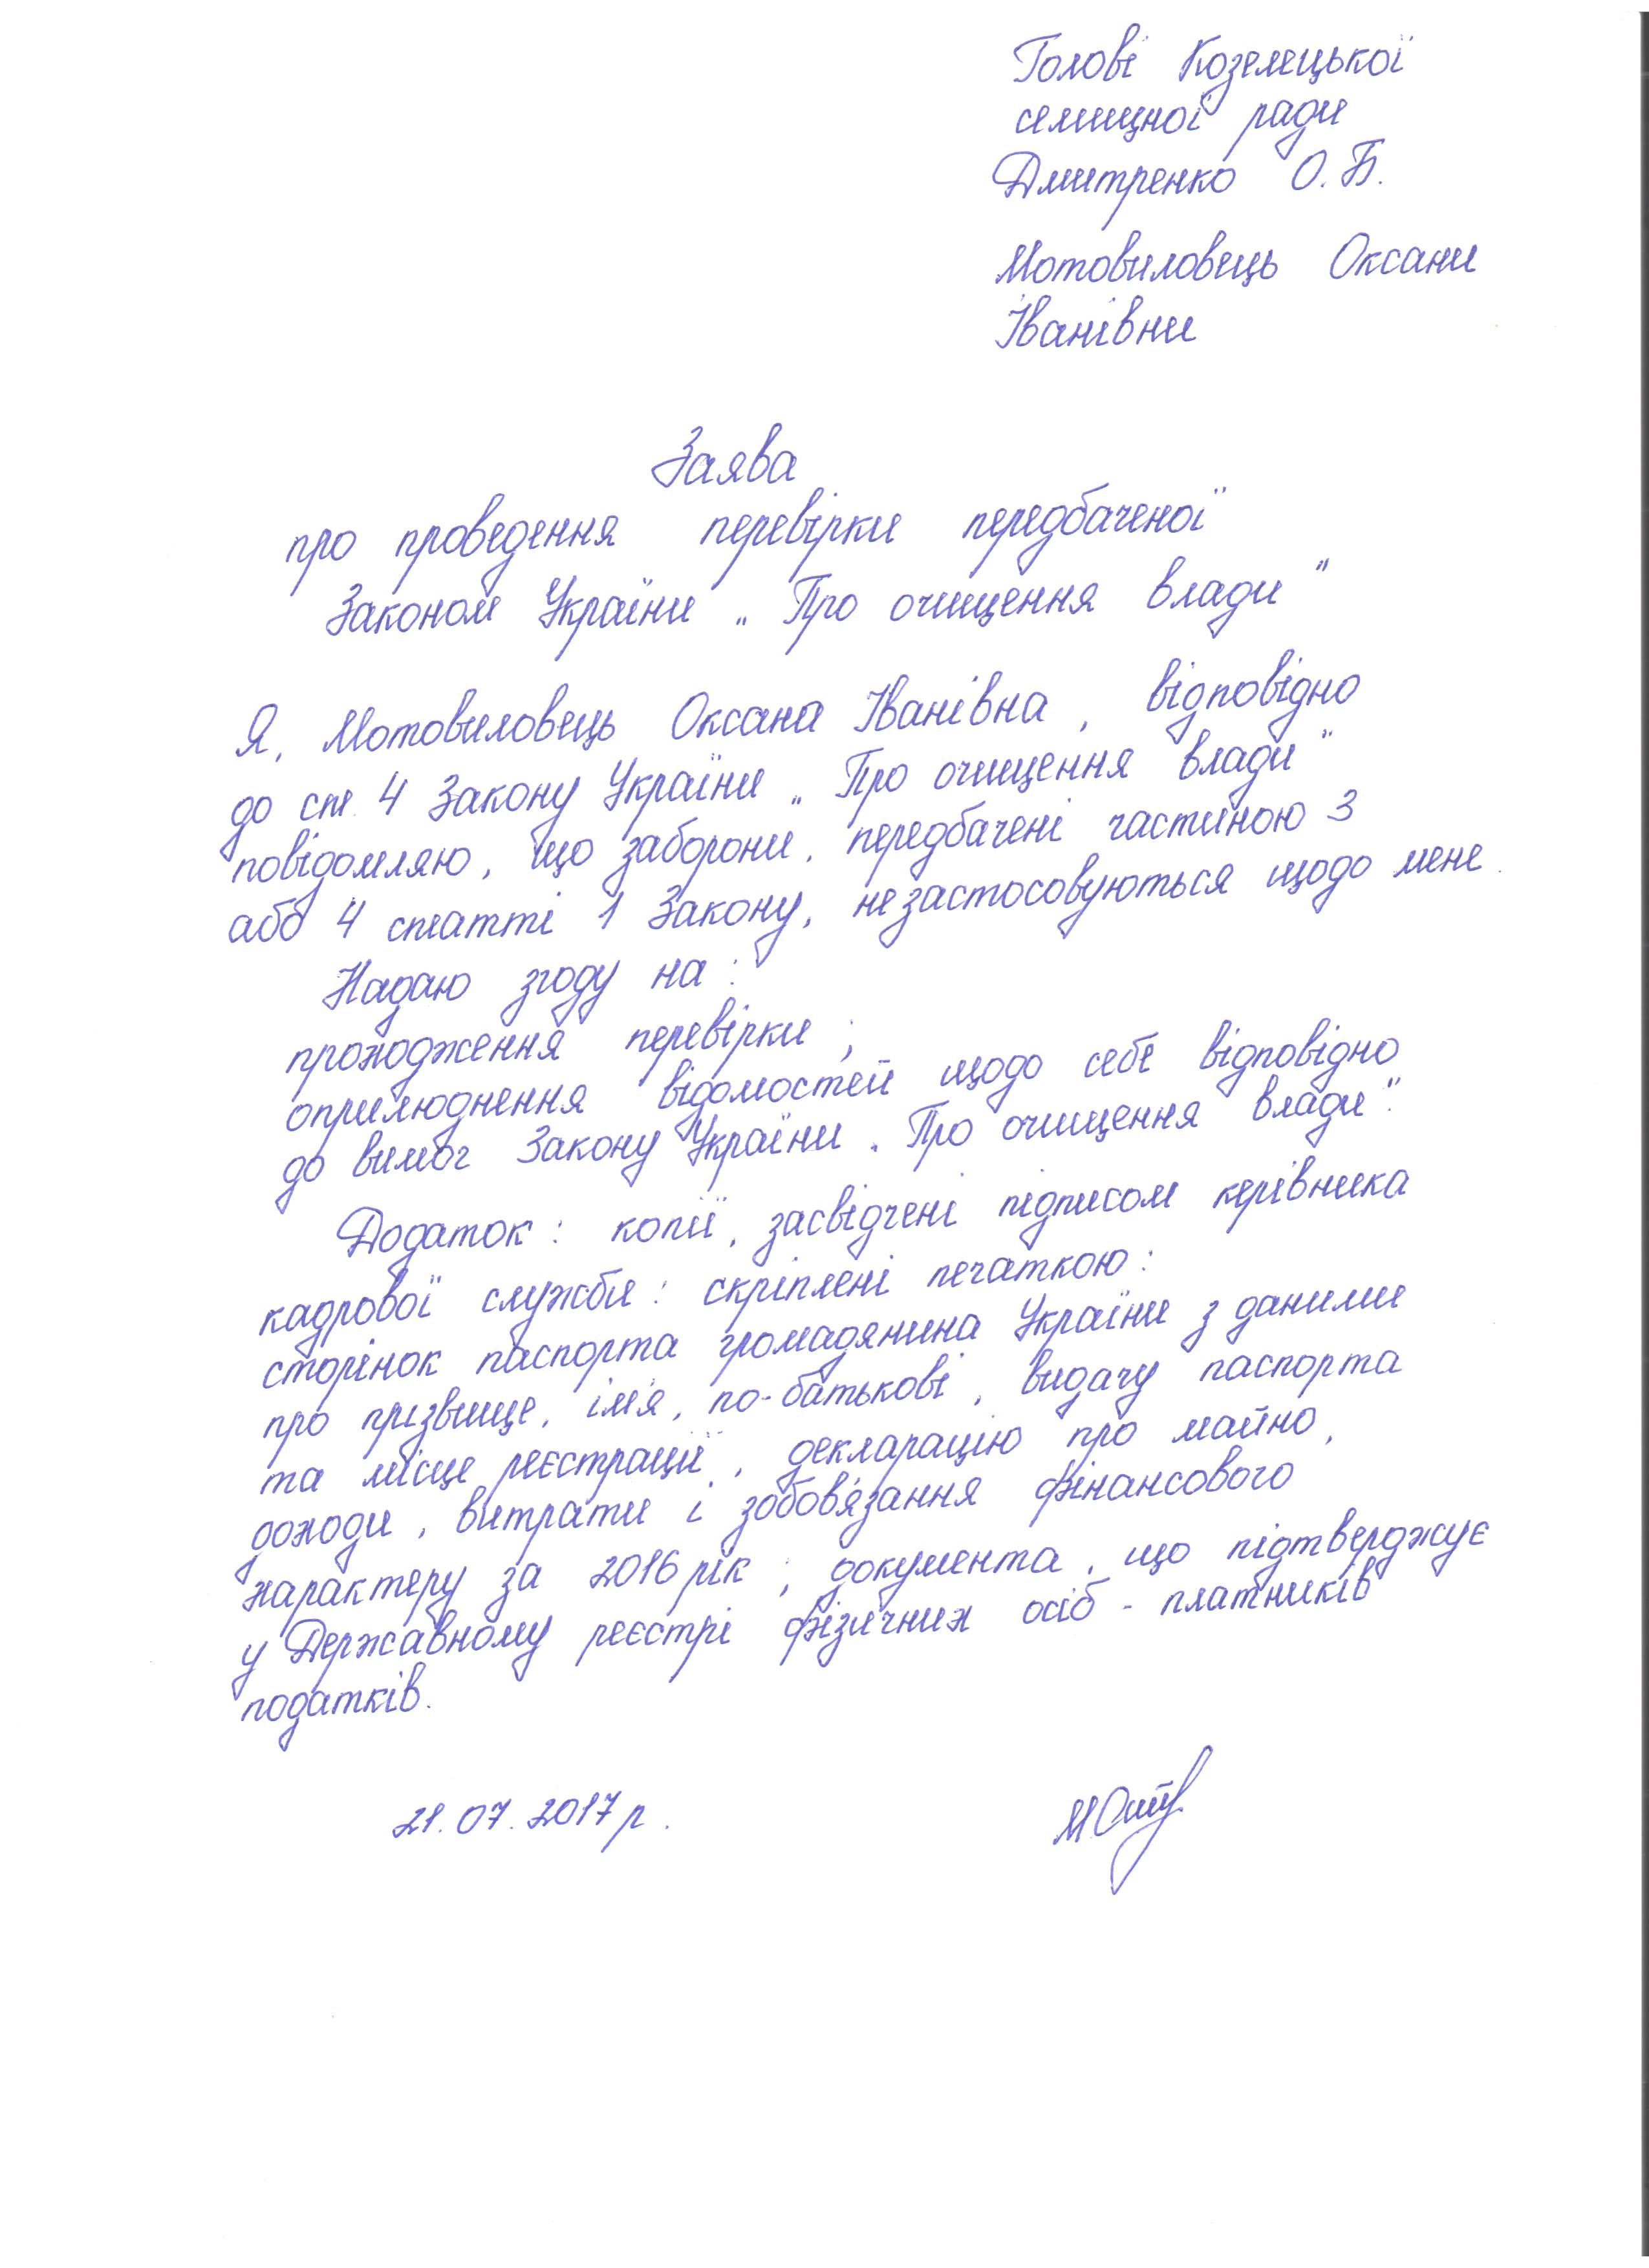 Голові Козелецької
селищної ради
Дмитренко О.Б.
Мотовиловець Оксани
Іванівни
Заява
про проведення перевірки передбаченої
Законом України „Про очищення влади"
Я, Мотовиловець Оксана Іванівна, відповідно
до ст. 4 Закону України „Про очищення влади"
повідомляю, що заборони, передбачені частиною 3
або 4 статті 1 Закону, не застосовуються щодо мене.
Надаю згоду на:
проходження перевірки;
оприлюднення відомостей щодо себе відповідно
до вимог Закону України „Про очищення влади".
Додаток: копії, засвідчені підписом керівника
кадрової служби: скріплені печаткою:
сторінок паспорта громадянина України з даними
про прізвище, ім'я, по-батькові, видачу паспорта
та місце реєстрації, декларацію про майно,
доходи, витрати і зобов'язання фінансового
характеру за 2016 рік; документа, що підтверджує
у Державному реєстрі фізичних осіб - платників
податків.
21.07.2017 р.